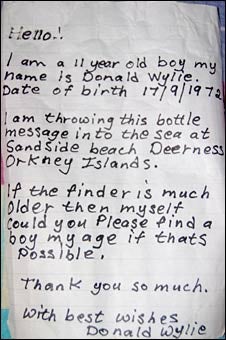 Hello!
I am a 11 year old boy my
name is Donald Wylie.
Date of birth 17/9/1972
I am throwing this bottle
message into the sea at
Sandside beach Deerness
Orkney Islands.
If the finder is much
Older then myself
Could you Please find a
boy my age if thats
Possible.
Thank you so much.
With best wishes
Donald Wylie